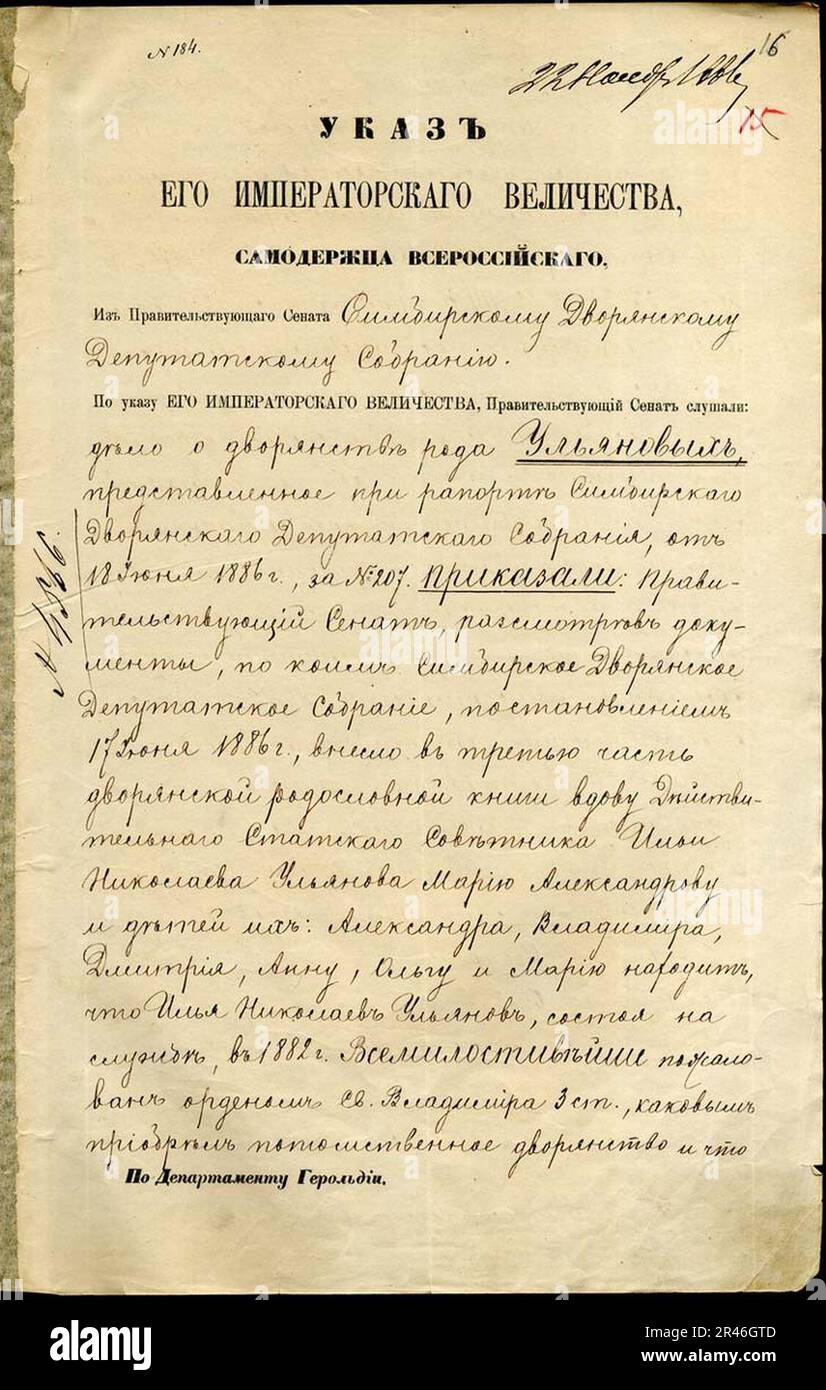 № 184.
16
22 Нояб
15
УКАЗЪ
ЕГО ИМПЕРАТОРСКАГО ВЕЛИЧЕСТВА,
САМОДЕРЖЦА ВСЕРОССІЙСКАГО,
Изъ Правительствующаго Сената Симбирскому Дворянскому
Депутатскому Собранію.
По указу ЕГО ИМПЕРАТОРСКАГО ВЕЛИЧЕСТВА, Правительствующій Сенатъ слушали:
дѣло о дворянствѣ рода Ульяновыхъ,
представленное при рапортѣ Симбирскаго
Дворянскаго Депутатскаго Собранія, отъ
18 Іюня 1886 г., за № 207. Приказали: Прави-
тельствующій Сенатъ, разсмотрѣвъ доку-
менты, по коимъ Симбирское Дворянское
Депутатское Собраніе, постановленіемъ
17 Іюня 1886 г., внесло въ третью часть
дворянской родословной книги вдову Дѣйстви-
тельнаго Статскаго Совѣтника Ильи
Николаева Ульянова Марію Александрову
и дѣтей ихъ: Александра, Владиміра,
Дмитрія, Анну, Ольгу и Марію находитъ,
что Илья Николаевъ Ульяновъ, состоя на
службѣ, въ 1882 г. Всемилостивѣйше пожало-
ванъ орденомъ Св. Владиміра 3 ст., каковымъ
пріобрѣлъ потомственное дворянство и что
По Департаменту Герольдіи.
alamy
Image ID: 2R46GTD
www.alamy.com